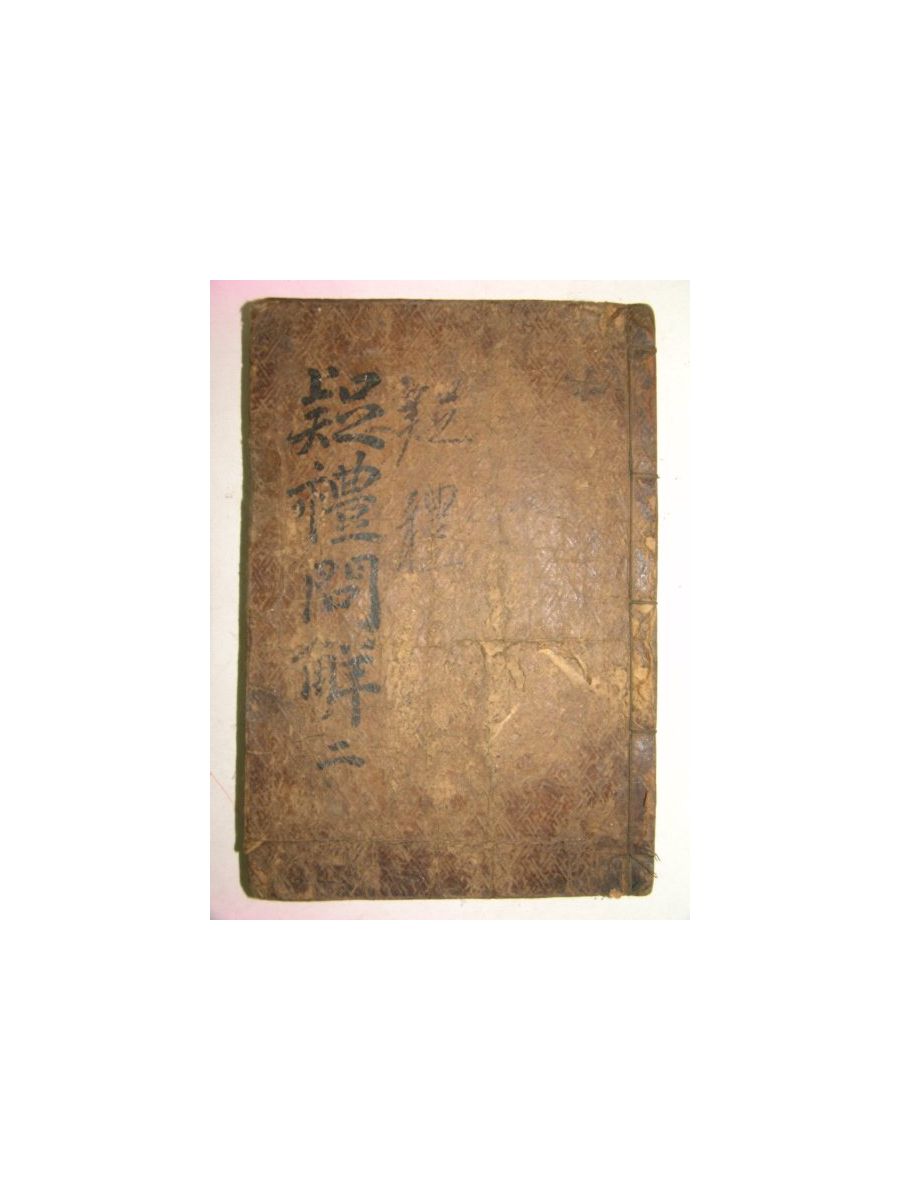 疑禮
疑禮問解 二